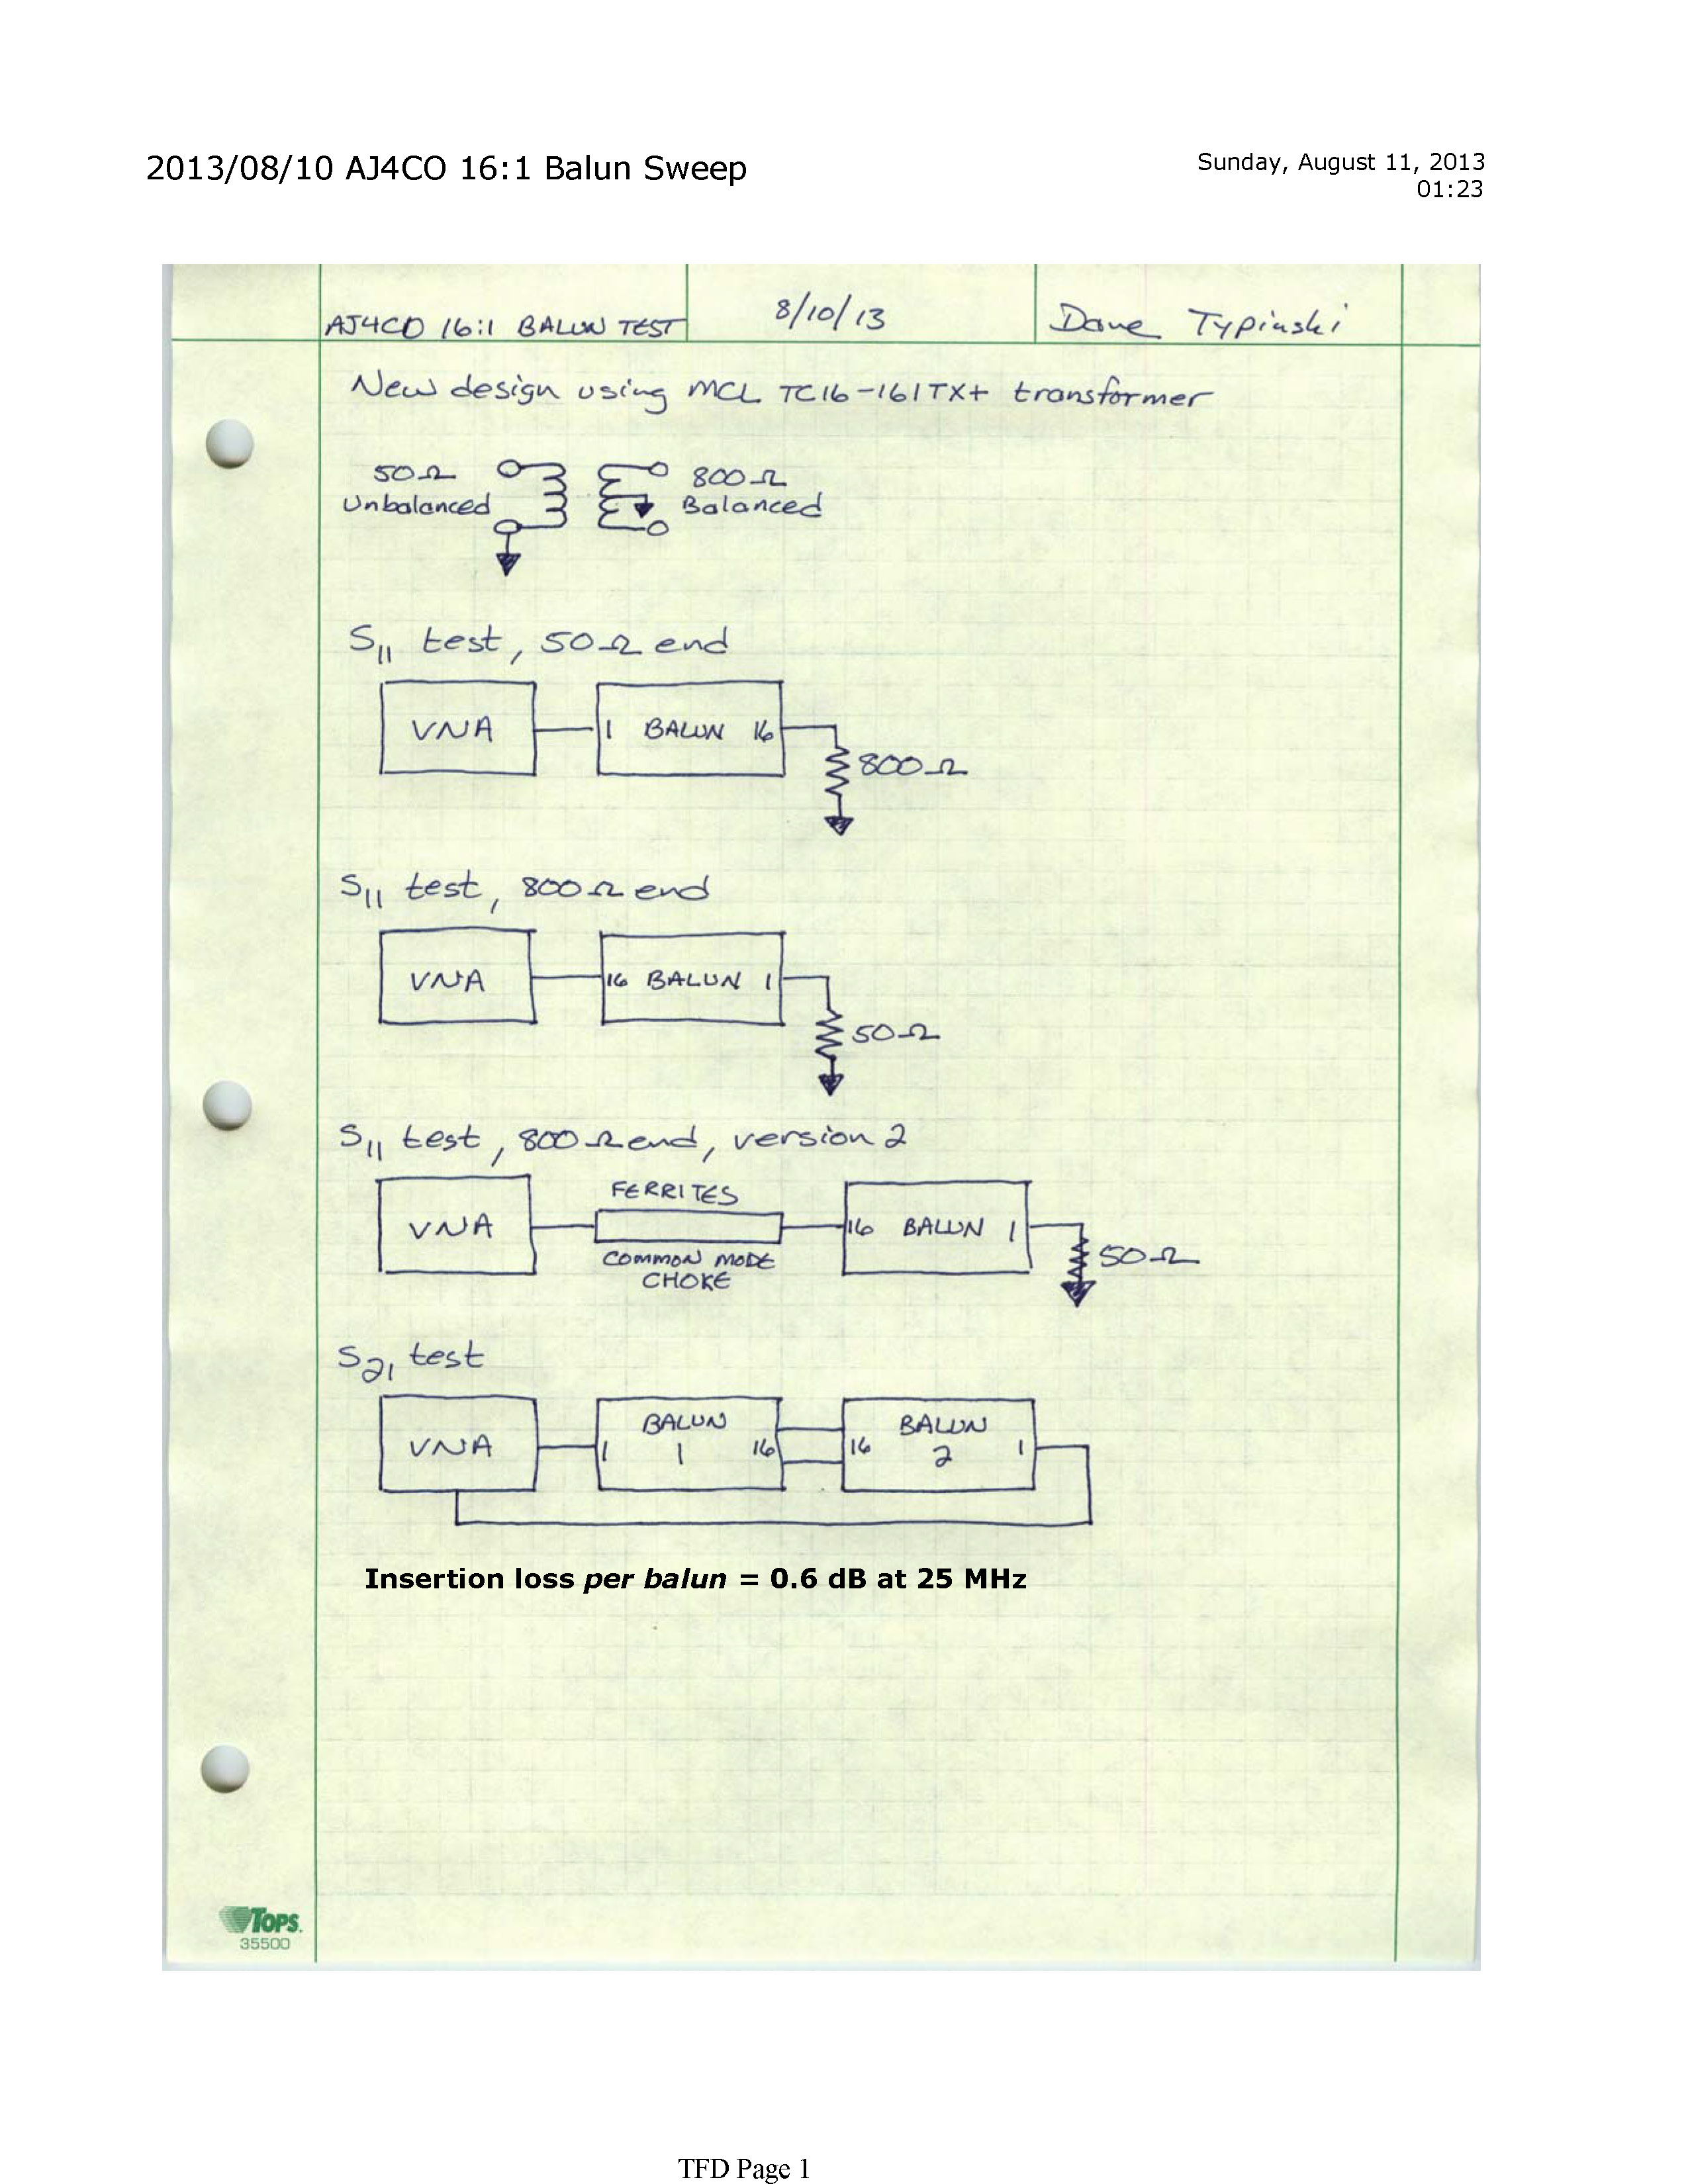 2013/08/10 AJ4CO 16:1 Balun Sweep
Sunday, August 11, 2013
01:23
AJ4CO 16:1 BALUN TEST
8/10/13
Dave Typinski
New design using MCL TC16-161TX+ transformer
50Ω
Unbalanced
800Ω
Balanced
S11 test, 50Ω end
VNA
1 BALUN 16
800Ω
S11 test, 800Ω end
VNA
16 BALUN 1
50Ω
S11 test, 800Ω end, version 2
VNA
FERRITES
COMMON MODE
CHOKE
16 BALUN 1
50Ω
S21 test
VNA
BALUN
1 1 16
BALUN
16 2 1
Insertion loss per balun = 0.6 dB at 25 MHz
TOPS.
35500
TFD Page 1